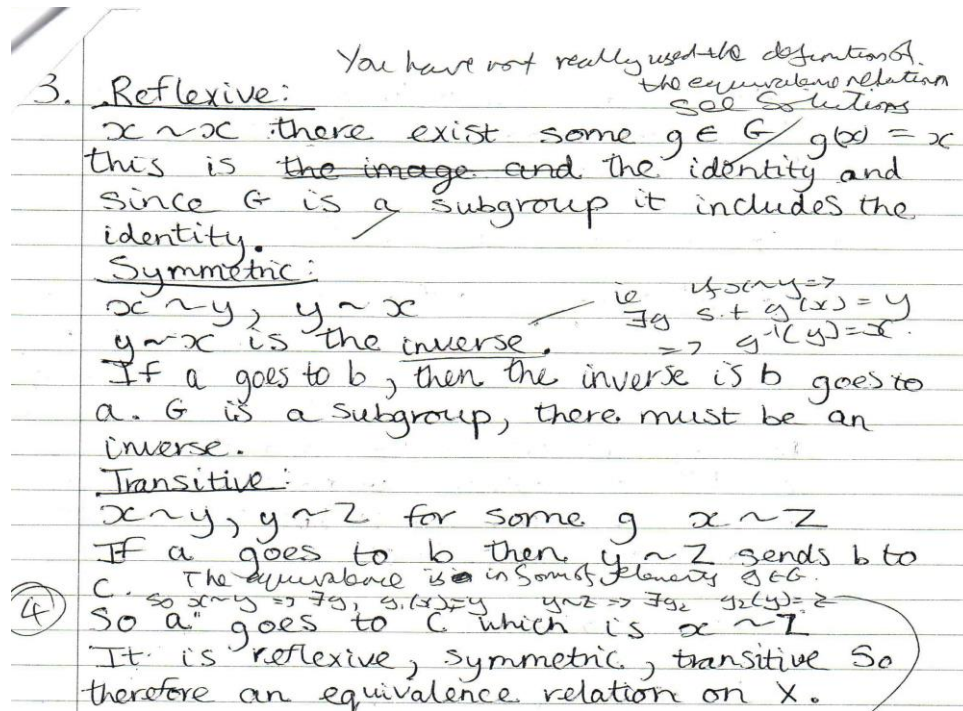 You have not really used the definition of.
the equivalence relation
see Solutions
3. Reflexive:
x ~ x there exist some g ∈ G g(x) = x
this is the image and the identity and
since G is a subgroup it includes the
identity.
Symmetric:
x ~ y, y ~ x
ie if x~y =>
∃g s.t g(x) = y
=> g⁻¹(y) = x.
y ~ x is the inverse.
If a goes to b, then the inverse is b goes to
a. G is a subgroup, there must be an
inverse.
Transitive:
x ~ y, y ~ z for some g x ~ z
If a goes to b then y ~ z sends b to
c.
The equivalence is in elements g ∈ G.
so x~y => ∃g₁ g₁(x)=y y~z => ∃g₂ g₂(y)=z
4
So a goes to c which is x ~ z
It is reflexive, symmetric, transitive So
therefore an equivalence relation on X.